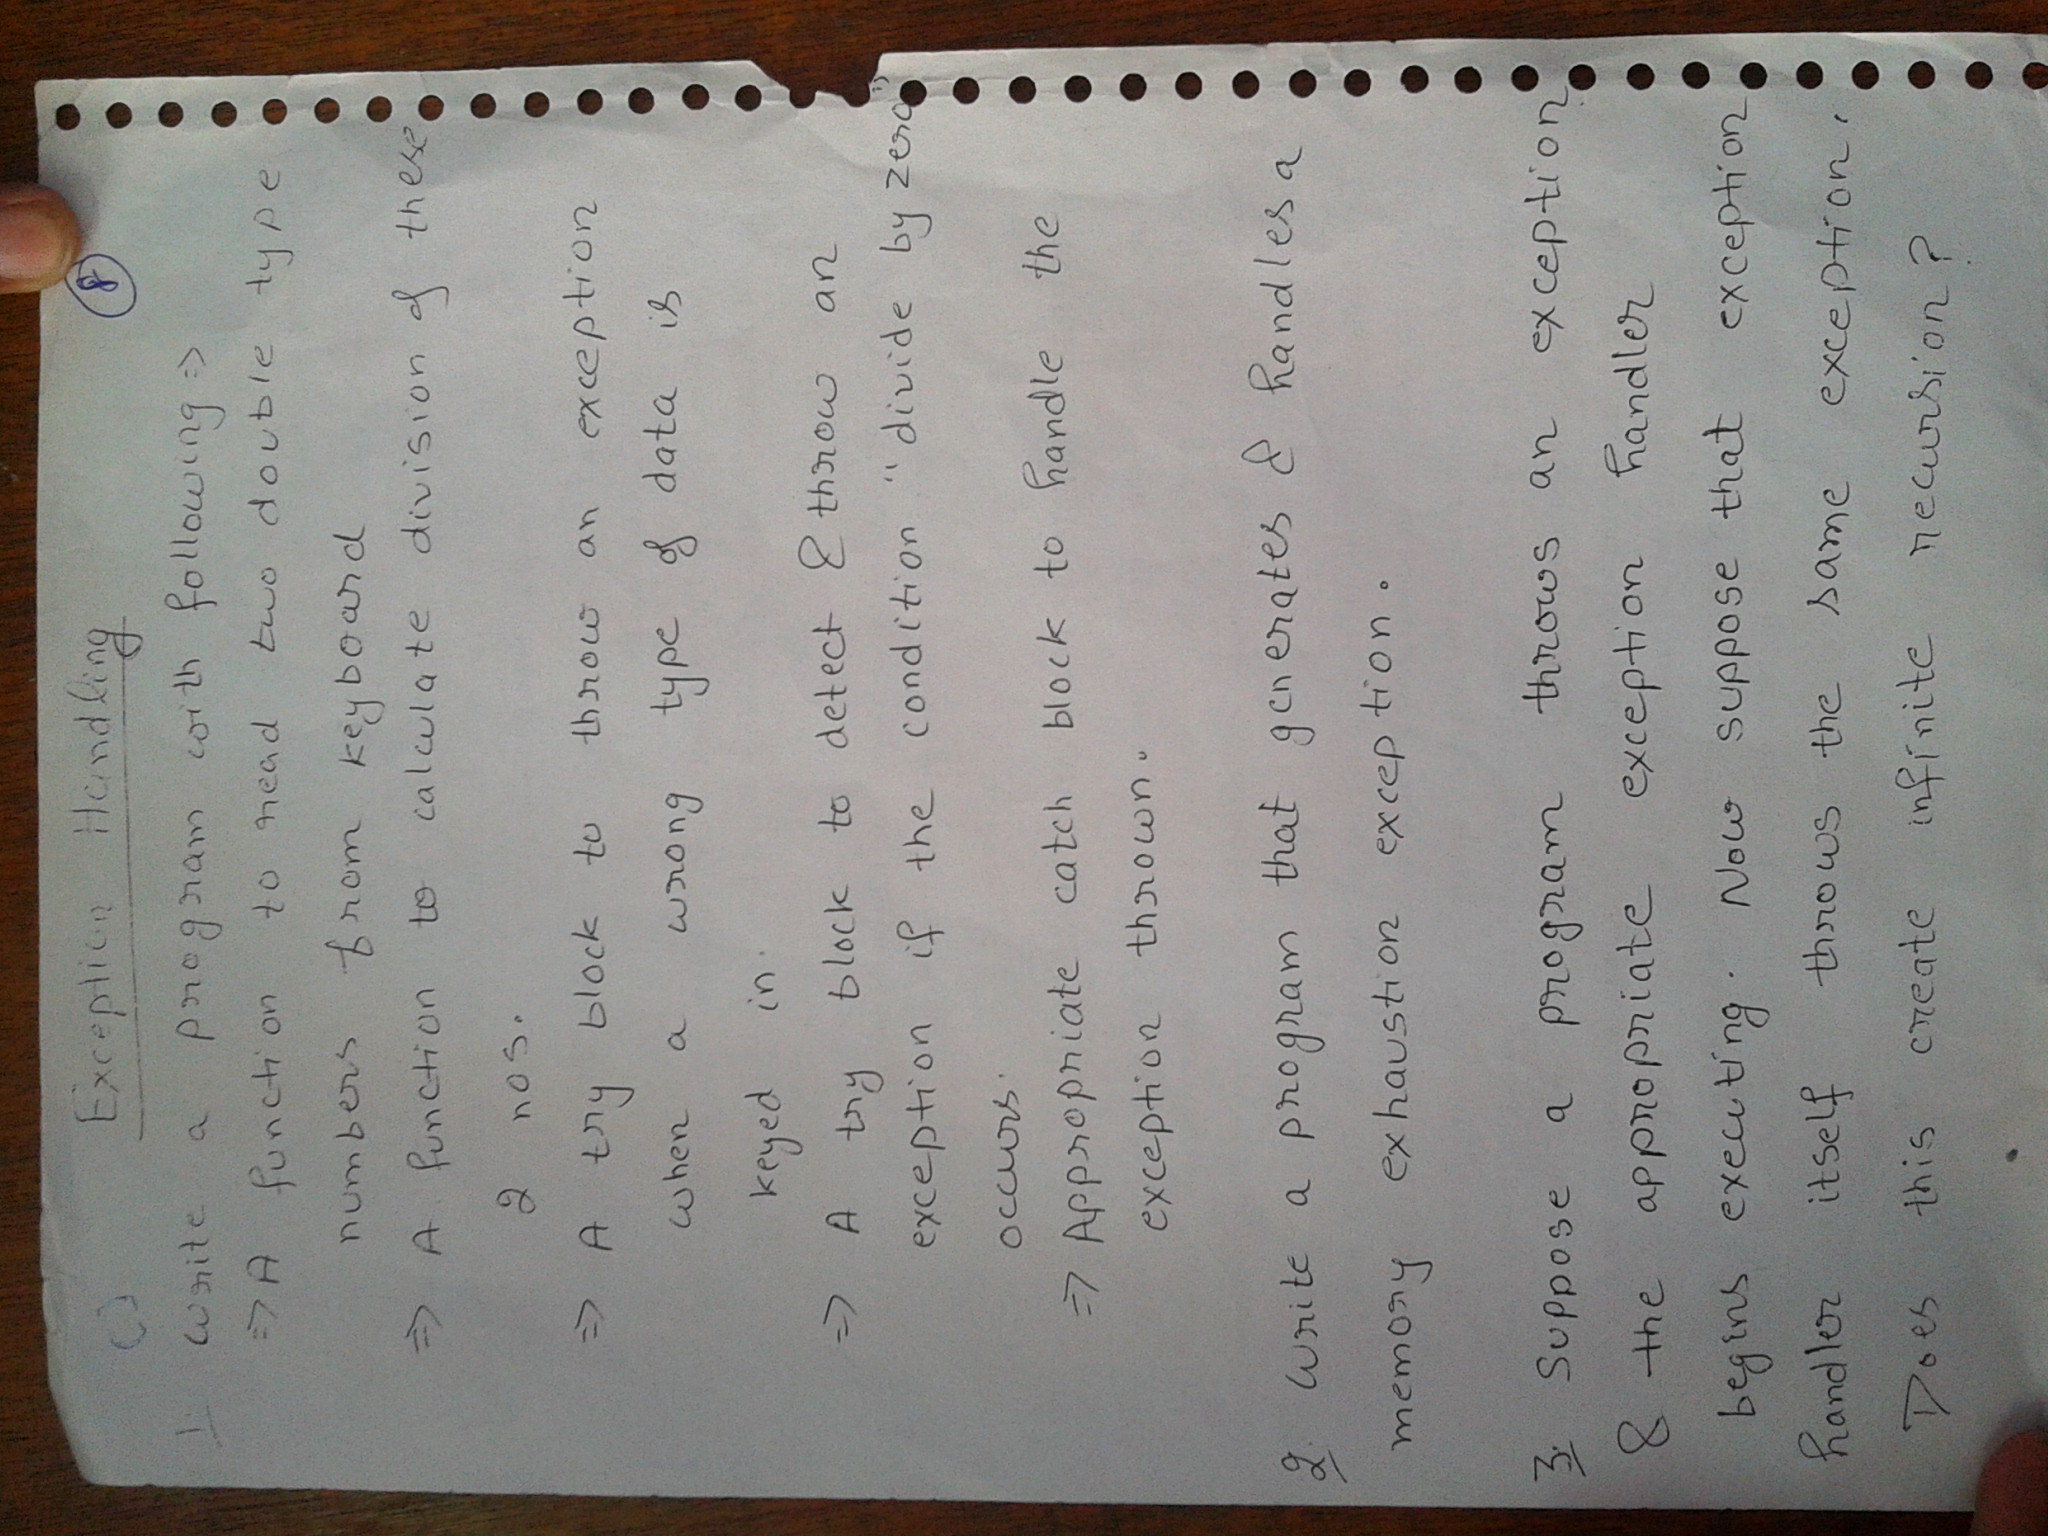 8
Exception Handling
1. Write a program with following =>
=> A function to read two double type
numbers from keyboard
=> A function to calculate division of these
2 nos.
=> A try block to throw an exception
when a wrong type of data is
keyed in.
=> A try block to detect & throw an
exception if the condition "divide by zero"
occurs.
=> Appropriate catch block to handle the
exception thrown.
2. Write a program that generates & handles a
memory exhaustion exception.
3. Suppose a program throws an exception
& the appropriate exception handler
begins executing. Now suppose that exception
handler itself throws the same exception.
Does this create infinite recursion?